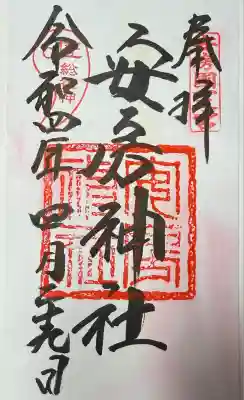 奉拝
安房神社
令和四年四月二十九日